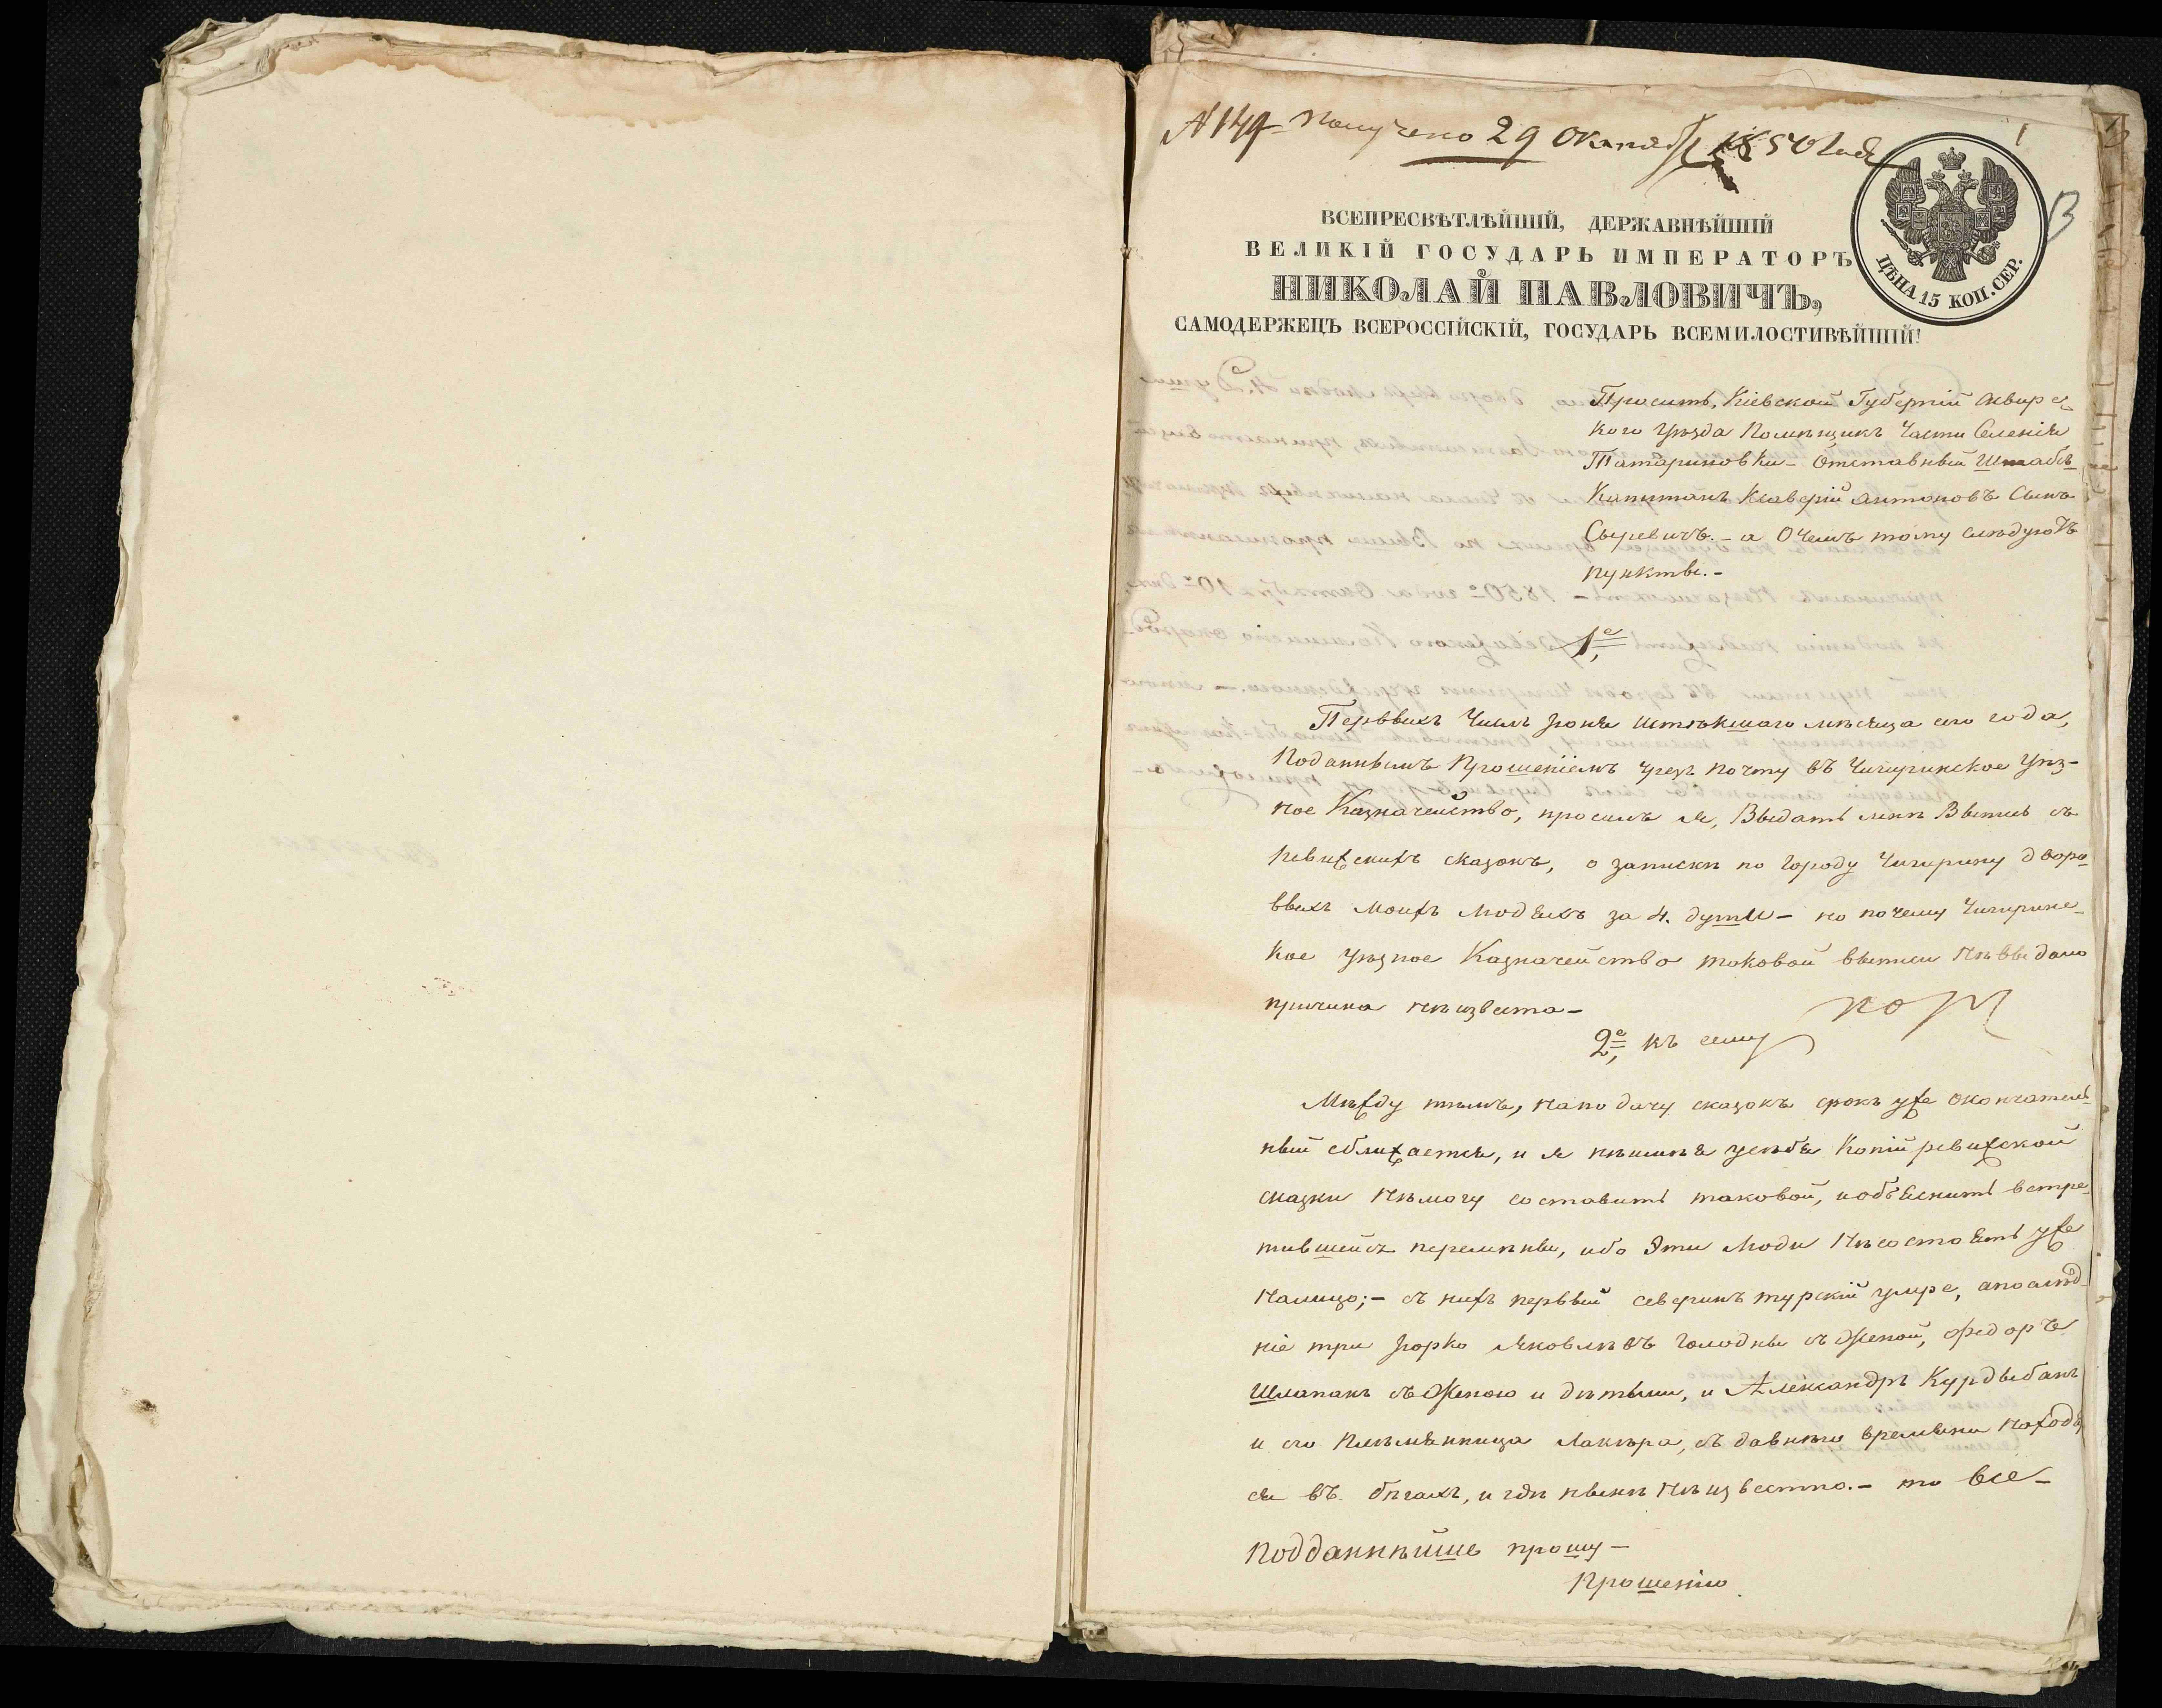 № 149 Получено 29 Октября 1850 года
1
13
ВСЕПРЕСВѢТЛѢЙШІЙ, ДЕРЖАВНѢЙШІЙ
ВЕЛИКІЙ ГОСУДАРЬ ИМПЕРАТОРЪ
НИКОЛАЙ ПАВЛОВИЧЪ,
САМОДЕРЖЕЦЪ ВСЕРОССІЙСКІЙ, ГОСУДАРЬ ВСЕМИЛОСТИВѢЙШІЙ!
ЦѢНА 15 КОП. СЕР.
Проситъ, Кіевской Губерніи Сквирс-
кого Уѣзда Помѣщикъ Части Селенія
Татариновки - Отставный Штабсъ
Капитанъ Ксаверій Антоновъ Сынъ
Сыревичъ. - а О чемъ тому слѣдуютъ
пункты. -
1е,
Первыхъ Чиселъ Іюня истѣкшаго мѣсяца сего года,
Поданнымъ Прошеніемъ чрезъ почту въ Чигиринское Уѣз-
ное Казначейство, просилъ я, Выдать мнѣ Выпись съ
Ревижскихъ сказокъ, о записки по Городу Чигирину дворо-
выхъ моихъ людяхъ за 4. души - но почему Чигиринс-
кое Уѣзное Казначейство таковой выписи Нѣ выдало
причина нѣизвеста -
2е, къ сему
Мѣжду тѣмъ, на подачу сказокъ срокъ уже окончатель-
ный сближается, и я нѣимѣя усѣбя Копіи ревижской
сказки Нѣмогу составить таковой, иобъяснить встре-
тившейся перемѣны, ибо Эти Люди Нѣсостоятъ уже
Налицо; - съ нихъ первый Северинъ Турскій умре, апослѣд-
ніе три Юрко Яковлѣвъ Голодны съ Женой, Федоръ
Шлапакъ съ Женою и дѣтьми, и Александръ Курдыбанъ
и его Племянница, съ давнѣго времяни Находя
ся въ бѣгахъ, и гдѣ нынѣ Нѣизвестно. - то Все-
подданнѣйше прошу -
Прошенію